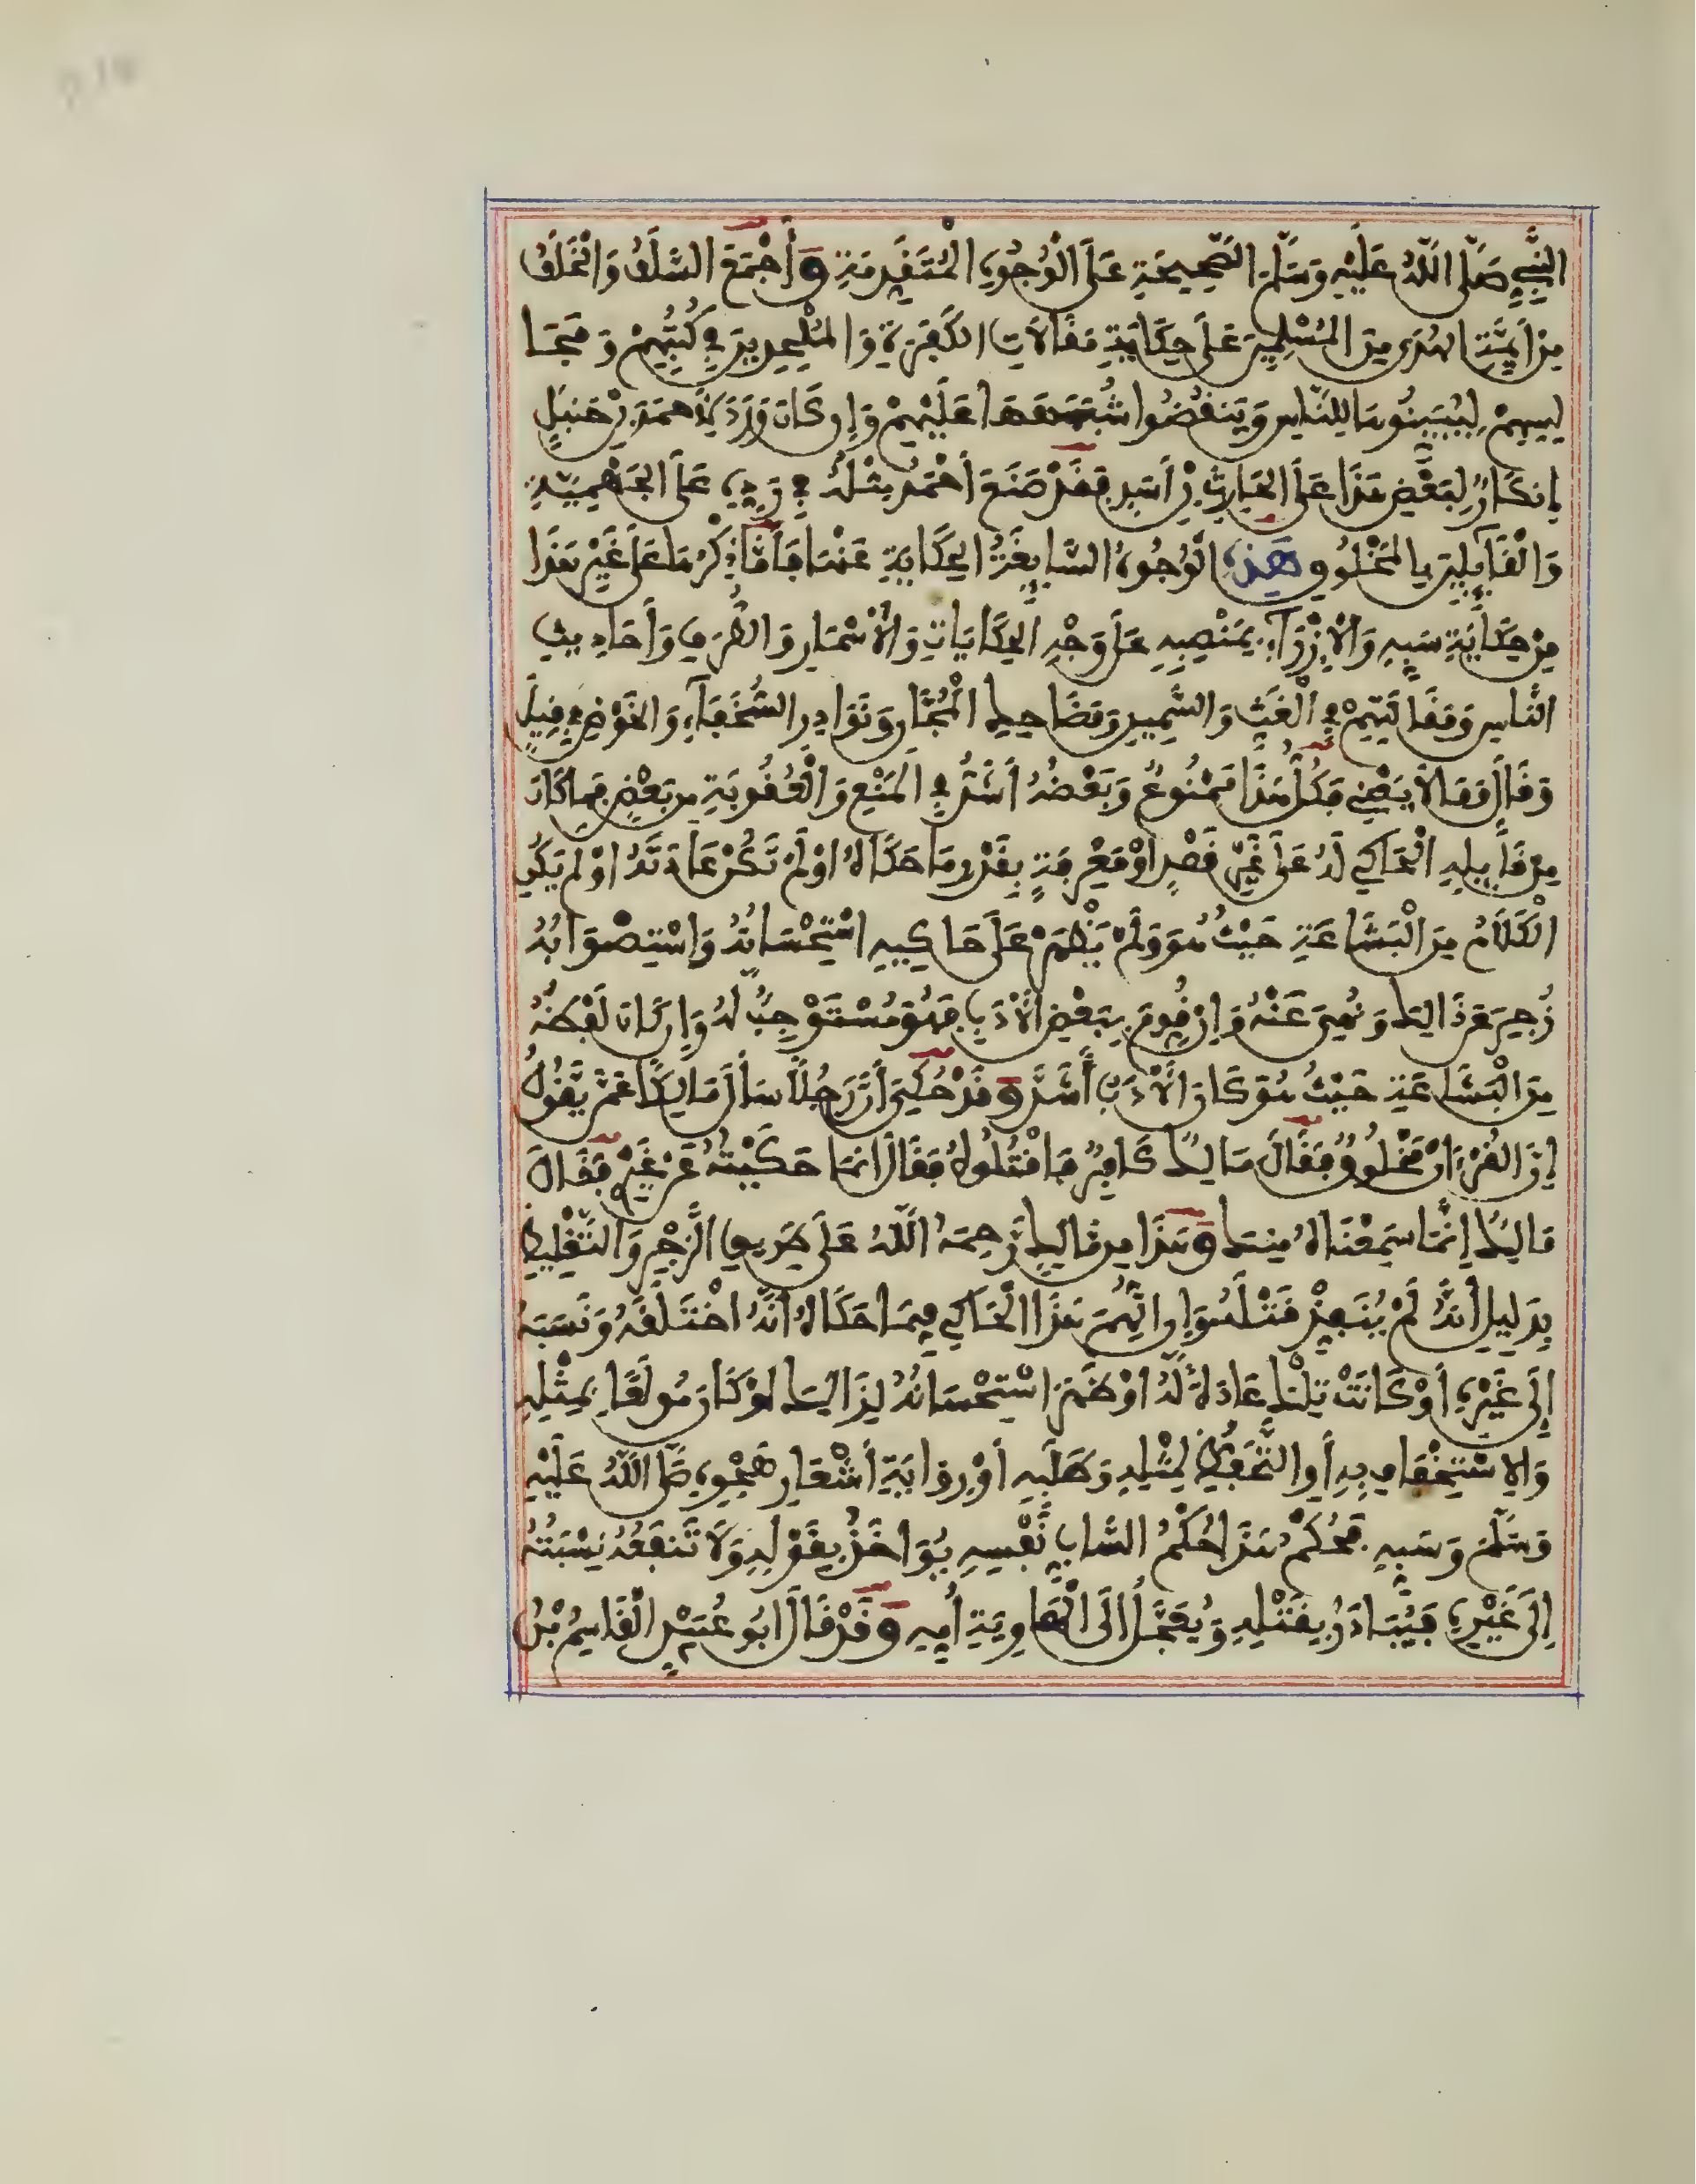 النَّبِيِّ صَلَّى اللَّهُ عَلَيْهِ وَسَلَّمَ الصَّحِيحَةِ عَلَى الْوُجُوهِ الْمُتَقَدِّمَةِ وَأَجْمَعَ السَّلَفُ وَالْخَلَفُ
مِنْ أَئِمَّةِ الهُدَى مِنَ الْمُسْلِمِينَ عَلَى حِكَايَةِ مَقَالَاتِ الكَفَرَةِ وَالْمُلْحِدِينَ فِي كُتُبِهِمْ وَمَجَا
لِسِهِمْ لِيُبَيِّنُوهَا لِلنَّاسِ وَيَنقُضُوا شُبَهَهَا عَلَيْهِمْ وَإِن كَانَ وَرَدَ لِأَحْمَدَ بْنِ حَنبَلٍ
إِنكَارٌ لِبَعْضِ هَذَا عَلَى الحَارِثِ بْنِ أَسَدٍ فَقَدْ صَنَعَ أَحْمَدُ مِثْلَهُ فِي رَدِّهِ عَلَى الجَهْمِيَّةِ
وَالْقَائِلِينَ بِالمَخْلُوقِ هَذِهِ الْوُجُوهُ السَّايِغَةُ الحِكَايَةِ عَنْهَا فَأَمَّا ذِكْرُهَا عَلَى غَيْرِ هَذَا
مِنْ حِكَايَةِ سَبِّهِ وَالْإِزْرَاءِ بِمَنْصِبِهِ عَلَى وَجْهِ الحِكَايَاتِ وَالْأَسْمَارِ وَالطُّرَفِ وَأَحَادِيثِ
النَّاسِ وَمَقَالَتِهِمْ فِي الْغَثِّ وَالسَّمِينِ وَمَضَاحِكِ الْمُجَّانِ وَنَوَادِرِ السُّخَفَاءِ وَالخَوْضِ فِي قِيلٍ
وَقَالَ فَقَالَا يَعْنِي فَكُلُّ هَذَا مَمْنُوعٌ وَبَعْضُهُ أَشَدُّ فِي الْمَنْعِ وَالْعُقُوبَةِ مِن بَعْضٍ فَمَا كَانَ
مِنْ قَائِلِهِ الْحَاكِي لَهُ عَلَى غَيْرِ قَصْدٍ أَوْ مَعْرِفَةٍ بِقَدْرِ مَا حَكَاهُ أَوْ لَمْ تَكُنْ عَادَتَهُ أَوْ لَمْ يَكُنِ
الْكَلَامُ مِنَ الْبَشَاعَةِ حَيْثُ هُوَ وَلَمْ يَظْهَرْ عَلَى حَاكِيهِ اسْتِحْسَانُهُ وَاسْتِصْوَابُهُ
زُجِرَ عَن ذَالِكَ وَنُهِيَ عَنْهُ وَإِنْ قُوِّمَ بِبَعْضِ الْأَدَبِ فَهُوَ مُسْتَوْجِبٌ لَهُ وَإِن كَانَ لَفْظُهُ
مِنَ الْبَشَاعَةِ حَيْثُ هُوَ كَانَ الْأَدَبُ أَشَدَّ وَقَدْ حُكِيَ أَنَّ رَجُلًا سَأَلَ مَالِكًا عَمَّن يَقُولُ
إِنَّ الْقُرْءَانَ مَخْلُوقٌ فَقَالَ مَالِكٌ كَافِرٌ فَاقْتُلُوهُ فَقَالَ إِنَّمَا حَكَيْتُهُ عَنْ غَيْرِي فَقَالَ
مَالِكٌ إِنَّمَا سَمِعْنَاهُ مِنكَ وَهَذَا مِن مَّالِكٍ رَحِمَهُ اللَّهُ عَلَى طَرِيقِ الزَّجْرِ وَالتَّغْلِيظِ
بِدَلِيلِ أَنَّهُ لَمْ يُنَفِّذْ قَتْلَهُ وَإِنِ اتُّهِمَ هَذَا الْحَاكِي فِيمَا حَكَاهُ أَنَّهُ اخْتَلَقَهُ وَنَسَبَهُ
إِلَى غَيْرِهِ أَوْ كَانَتْ تِلْكَ عَادَةً لَّهُ أَوْ ظَهَرَ اسْتِحْسَانُهُ لِذَالِكَ أَوْ كَانَ مُولَعًا بِمِثْلِهِ
وَالِاسْتِخْفَافِ بِهِ أَوِ التَّحَفُّظِ لِمِثْلِهِ وَطَلَبِهِ أَوْ رِوَايَةِ أَشْعَارِ هَجْوِهِ صَلَّى اللَّهُ عَلَيْهِ
وَسَلَّمَ وَسَبِّهِ فَحُكْمُ هَذَا حُكْمُ السَّابِّ نَفْسِهِ يُؤَاخَذُ بِقَوْلِهِ وَلَا تَنفَعُهُ نِسْبَتُهُ
إِلَى غَيْرِهِ فَيُبَادَرُ بِقَتْلِهِ وَيُعَجَّلُ إِلَى الْهَاوِيَةِ أُمِّهِ وَقَدْ قَالَ أَبُو عُبَيْدٍ الْقَاسِمُ بْنُ